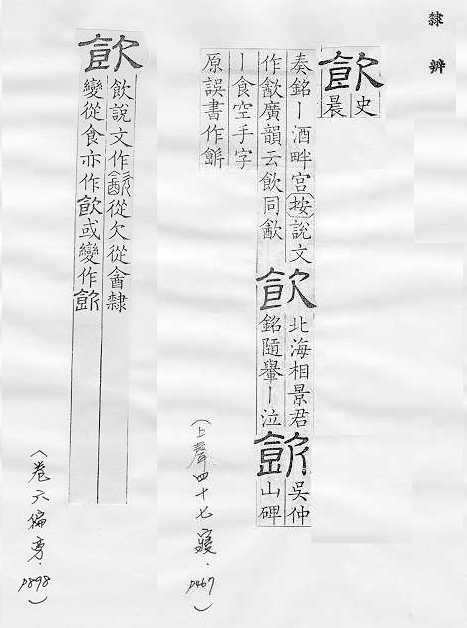 隸辨
飲
史
晨
奏銘丨酒畔宮按說文
作㱃廣韻云飲同㱃
飲
北海相景君
銘隨轝丨泣
飲
吳仲
山碑
丨食空手字
原誤書作
（上聲四十七寢．P467）
飲
飲說文作㱃從欠從酓隸
變從食亦作飲或變作
（卷六偏旁．P898）